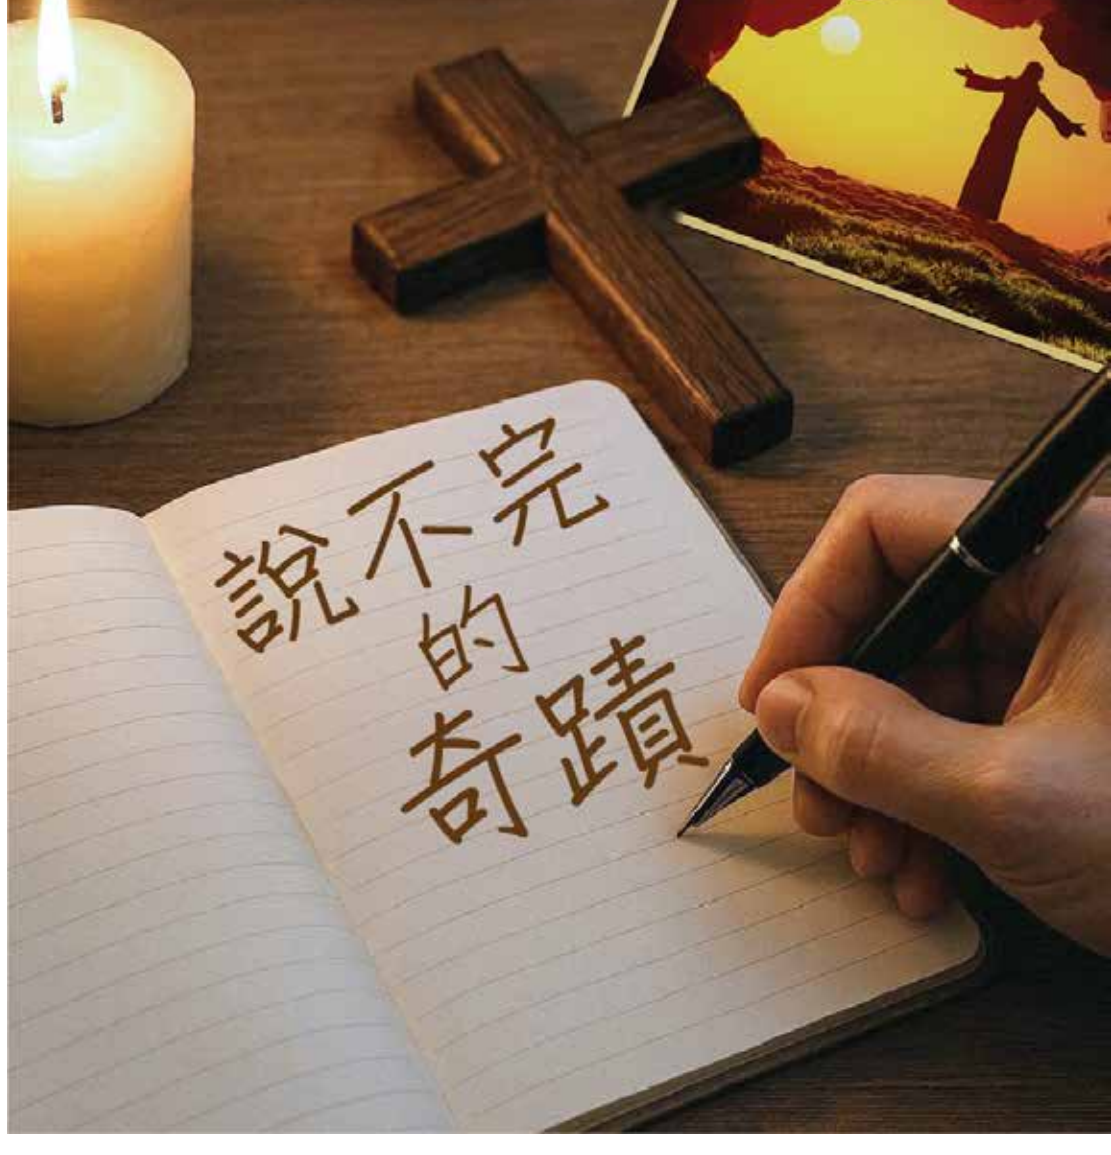 說不完
的
奇蹟